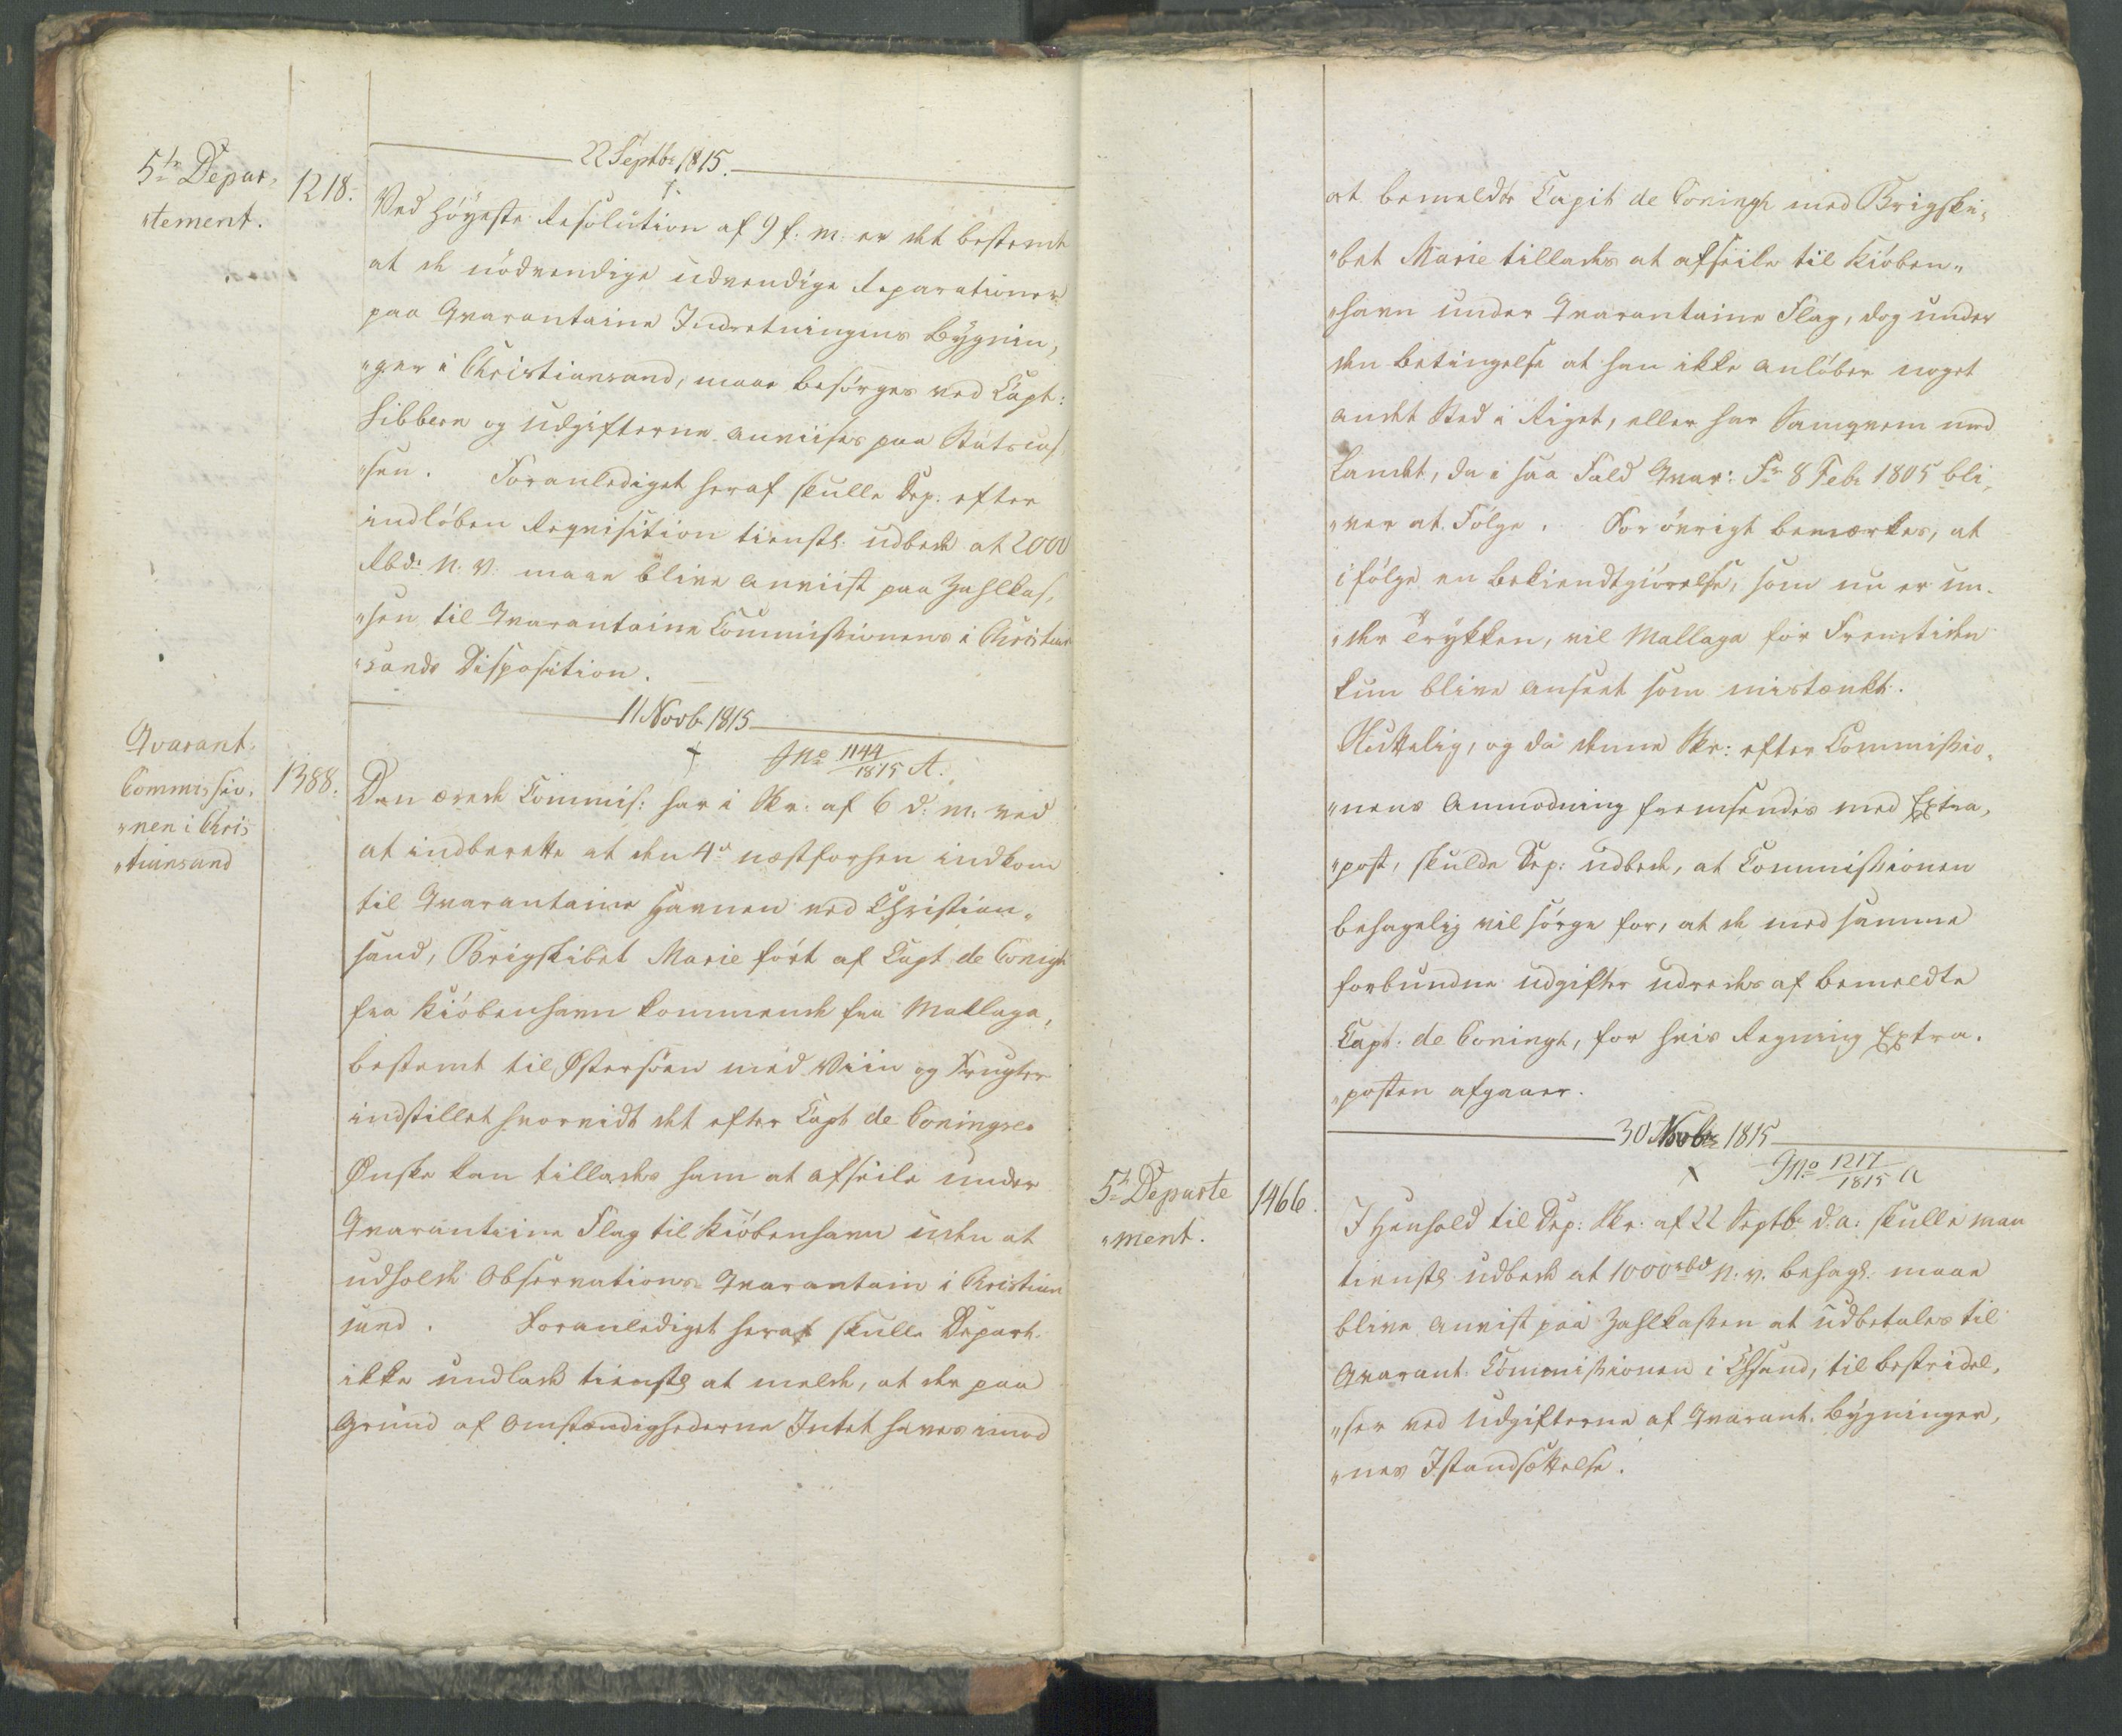 22 Septbr 1815.
5te Depar„
„tement.
1218.
Ved Høyeste Resolution af 9 f: m: er det bestemt
at de nödvendige udvendige Reparationer
paa Qvarantaine Indretningens Bÿgnin„
„ger i Christiansand, maae besörges ved Capt:
Sibbern og Udgifterne anviises paa Statscas„
„sen. Foranlediget heraf skulle Dep: efter
indløben Reqvisition tienstl. udbede at 2000
Rbd: N. V. maae blive anviist paa Zahlkas„
„sen til Qvarantaine Commissionens i Christian
„sands Disposition.
11 Novb 1815
+ JNo 1144/1815 A.
Qvarant.
Commissio„
„nen i Chri„
„stiansand
1388.
Den ærede Commis: har i Skr: af 6 d: m: ved
at indberette at den 4de næstforhen indkom
til Qvarantaine Havnen ved Christian„
sand, Brigskibet Marie ført af Capt de Conigh
fra Kiöbenhavn kommende fra Mallaga,
bestemt til Østersöen med Viin og Frugter
indstillet hvorvidt det efter Capt de Coninges
Ønske kan tillades ham at afseile under
Qvarantaine Flag til Kiöbenhavn uden at
udholde Observations Qvarantain i Christian
sand. Foranlediget heraf skulle Depart.
ikke undlade tienstl at melde, at der paa
Grund af Omstændighederne Intet haves imod
at bemeldte Capit de Coningh med Brigski„
„bet Marie tillades at afseile til Kiöben„
„havn under Qvarantaine Flag, dog under
den Betingelse at han ikke anlöber noget
andet Sted i Riget, eller har Samqvem med
Landet, da i saa Fald Qvar: Fr 8 Febr 1805 bli„
„ver at Fölge. For övrigt bemærkes, at
ifölge en Bekiendtgiörelse, som nu er un„
„der Trÿkken, vil Mallaga for Fremtiden
kun blive anseet som mistænkt.
Sluttelig, og da denne Skr: efter Commissio„
„nens Anmodning fremsendes med Extra„
„post, skulde Dep: udbede, at Commissionen
behagelig vil sörge for, at de med samme
forbundne Udgifter udredes af bemeldte
Capt: de Coningh, for hvis Regning Extra„
„posten afgaaer.
30 Novbr 1815
+ JNo 1217/1815 A
5te Departe
„ment.
1466.
I Henhold til Dep: Skr: af 22 Septbr d: a: skulle man
tienstl udbede at 1000 rbd N. V. behagl: maae
blive anvist paa Zahlkassen at udbetales til
Qvarant: Commissionen i Chsand, til Bestridel„
„ser ved Udgifterne af Qvarant. Bÿgninger„
„nes Istandsættelse.